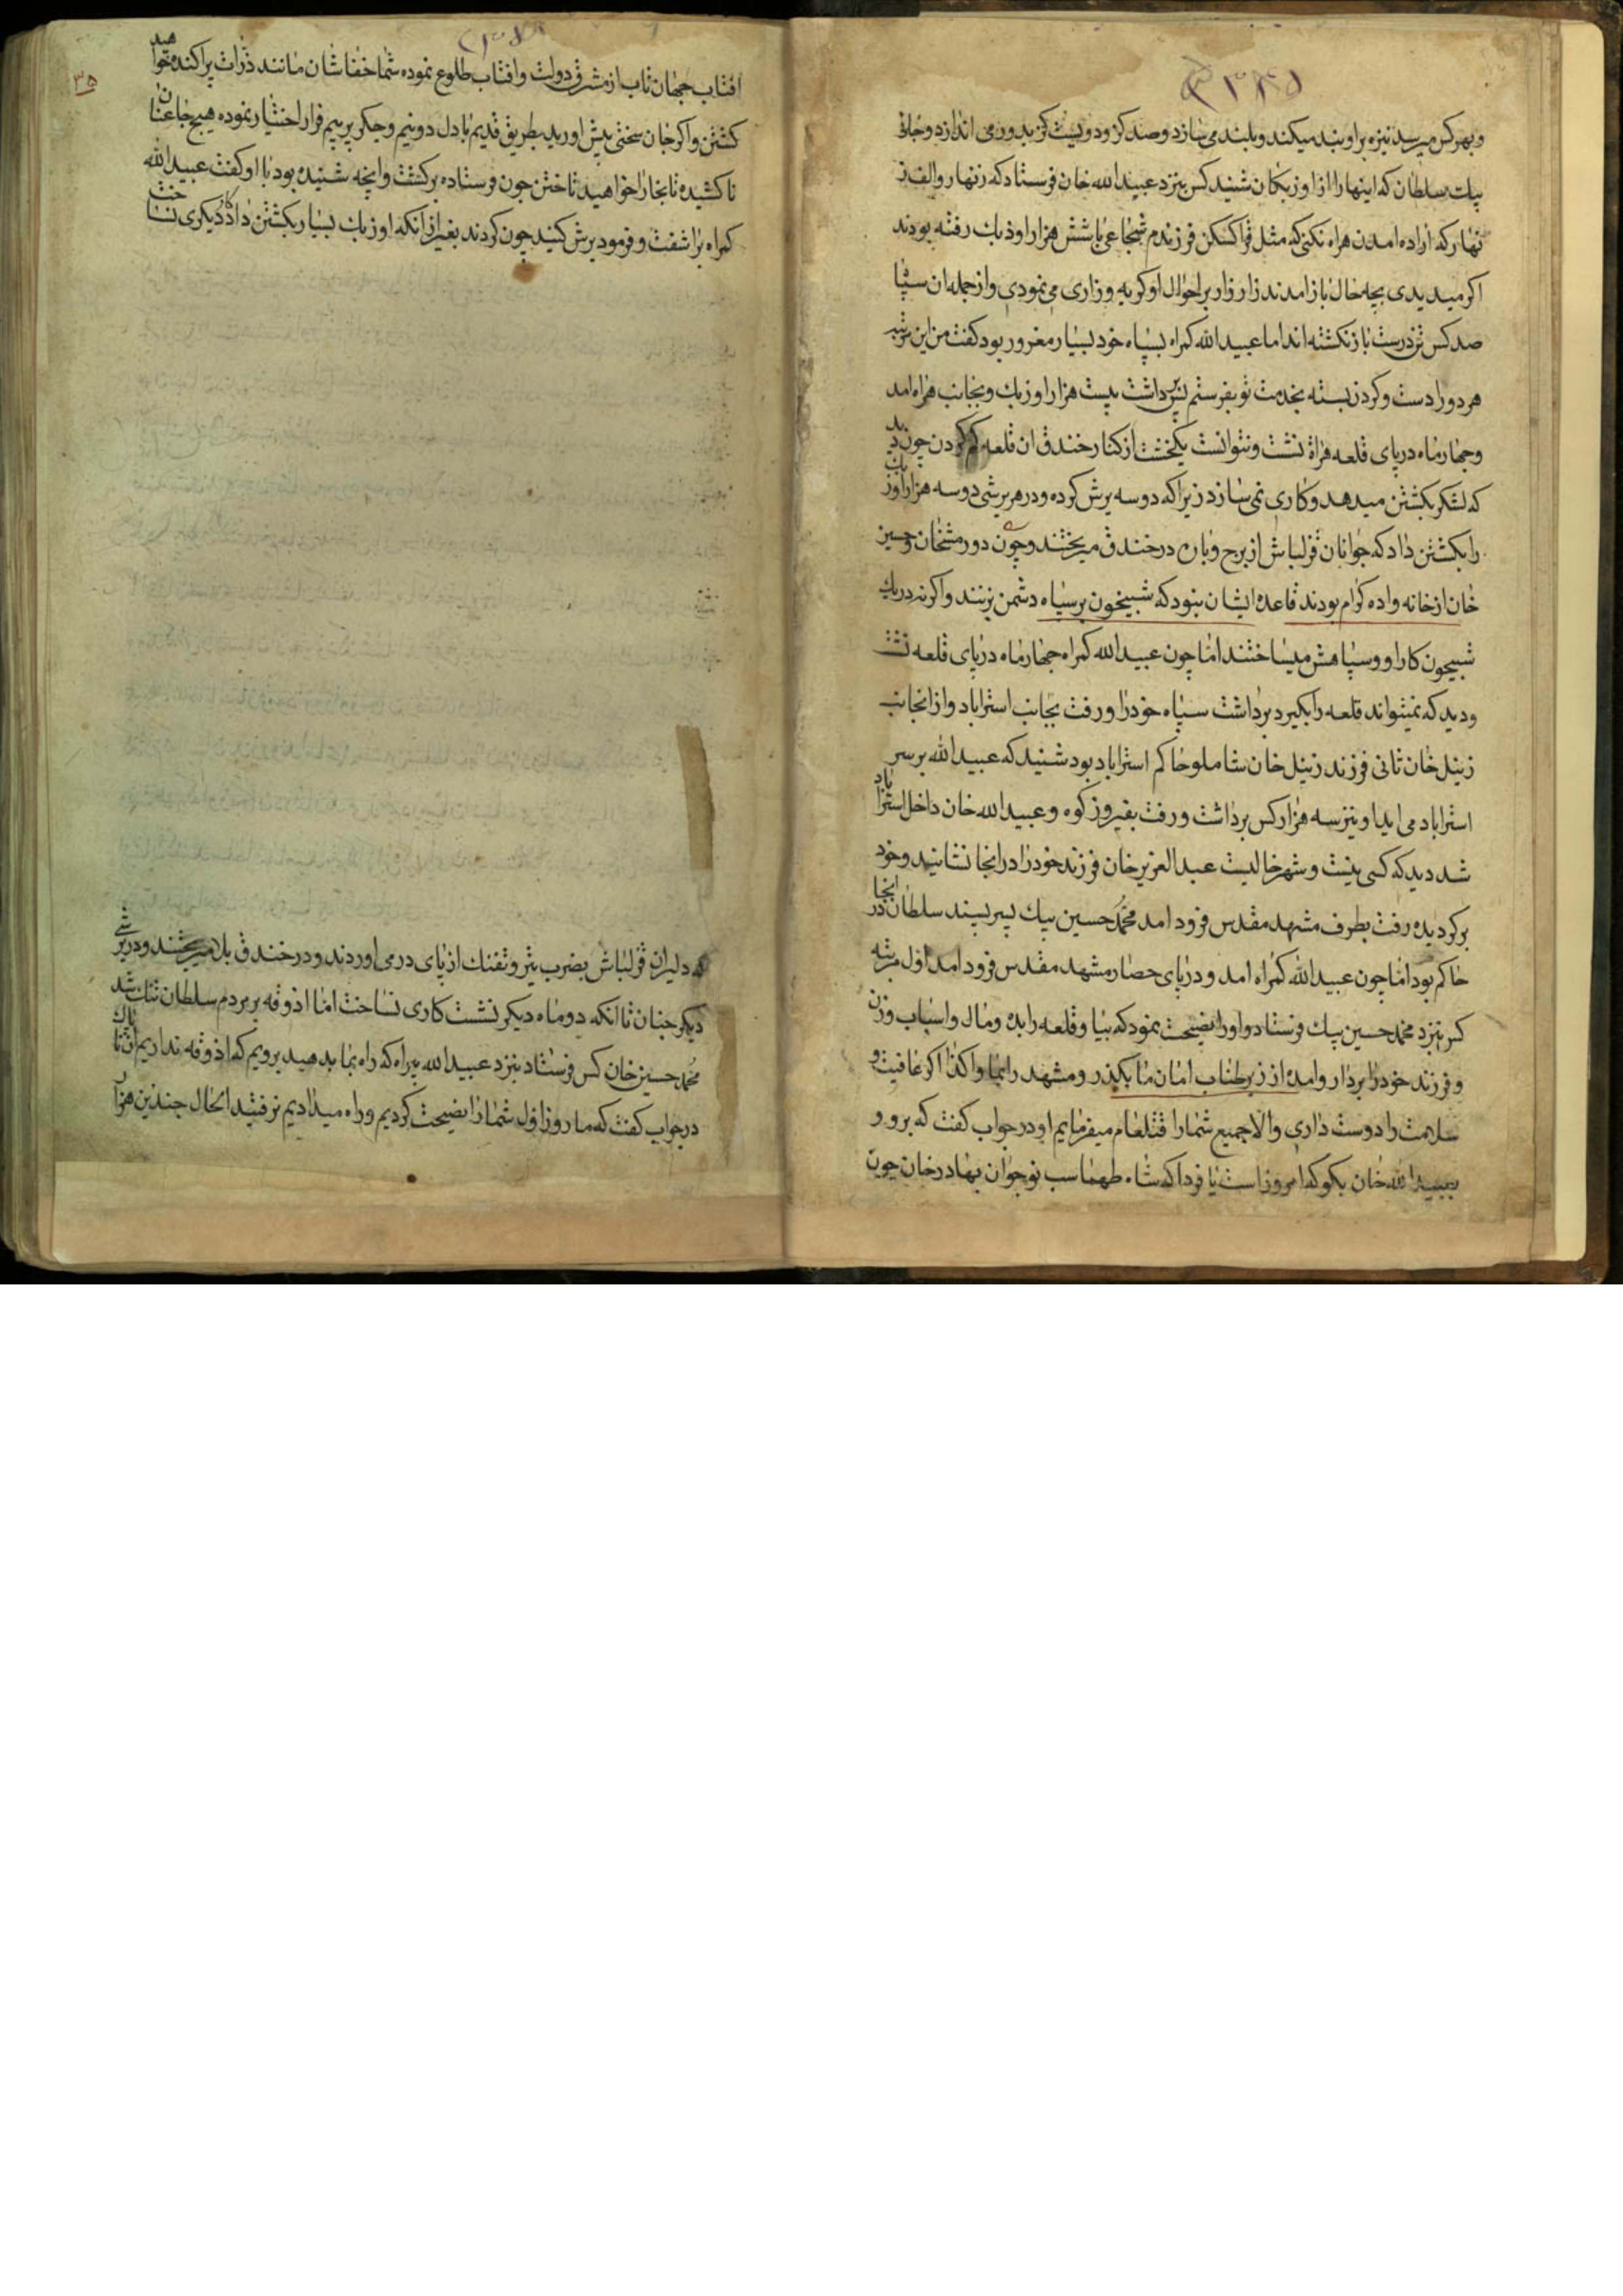 وبهر کس میرسد نیزه براو بند میکند و بلند می سازد و صد کز و دویست کز بدور می اندازد و جانی
بیک سلطان که اینها را از اوزبکان شنید کس بنزد عبیدالله خان فرستاد که زنهار و الف ز
نهار که اراده امدن هراه نکنی که مثل قراکسکن فرزندم شجاعی با شش هزار اوزبک رفته بودند
اکر میدیدی بچه حال باز امدند زار زار بر احوال او کریه وزاری می نمودی و از جمله ان سپاه
صد کس تن درست باز نکشته اند اما عبیدالله کمراه بسپاه خود بسیار مغرور بود کفت من این مرتبه
هر دورا دست و کردن بسته بخدمت تو بفرستم پس برداشت بیست هزار اوزبک و بجانب هراه امد
و چهار ماه در پای قلعه هراة نشست و نتوانست یکخشت از کنار خندق ان قلعه کم کردن چون دید
که لشکر بکشتن میدهد و کاری نمی سازد زیرا که دو سه یرش کرده و در هر یرشی دو سه هزار اوزبک
را بکشتن داد که جوانان قزلباش از برج و باره در خندق میریختند و چون دورمشخان و حسین
خان از خانه واده کرام بودند قاعده ایشان نبود که شبیخون بر سپاه دشمن بزنند و اکر نه در یک
شبیخون کار او و سپاهش میساختند اما چون عبیدالله کمراه چهار ماه در پای قلعه نشست
و دید که نمیتواند قلعه را بکیرد برداشت سپاه خود را و رفت بجانب استراباد و از انجانب
زینل خان ثانی فرزند زینل خان شاملو حاکم استراباد بود شنید که عبیدالله بر سر
استراباد می اید او نیز سه هزار کس برداشت و رفت بفیروز کوه و عبیدالله خان داخل استراباد
شد دید که کسی نیست و شهر خالیست عبدالعزیز خان فرزند خود را در انجا نشانید و خود
بر کردیده رفت بطرف مشهد مقدس فرود امد محمد حسین بیک پسر پسند سلطان در انجا
حاکم بود اما چون عبیدالله کمراه امد و در پای حصار مشهد مقدس فرود امد اول مرتبه
کس بنزد محمد حسین بیک فرستاد و اورا نصیحت نمود که بیا و قلعه را بده و مال و اسباب و زن
و فرزند خود را بردار و امده از زیر طناب امان ما بکذر و مشهد را بما واکذار اکر عافیت و
سلامت را دوست داری و الا جمیع شما را قتلعام میفرمایم او در جواب کفت که برو و
بعبیدالله خان بکو که امروز است یا فردا که شاه طهماسب نوجوان بهادر خان چون
۳۵
افتاب جهان تاب از مشرق دولت و افتاب طلوع نموده شما خفاشان مانند ذرات پراکنده خواهید
کشتن و اکر خان سختی پیش اورید بطریق قدیم با دل دو نیم و جکر پر بیم فرار اختیار نموده هیچ جا عنان
نا کشیده تا بخارا خواهید تاختن چون فرستاده بر کشت و انچه شنیده بود باا او کفت عبیدالله
کمراه براشفت و فرمود یرش کنید چون کردند بغیر از انکه اوزبک بسیار بکشتن داد کار دیکری نساخت
که دلیران قزلباش بضرب تیر و تفنک از پای در می اوردند و در خندق بلا میریختند و در یرشی
دیکر چنان تا انکه دو ماه دیکر نشست کاری نساخت اما اذوقه بر مردم سلطان تنک شد
محمد حسین خان کس فرستاد بنزد عبیدالله بیراه که راه بما بدهید برویم که اذوقه نداریم ان ناپاک
در جواب کفت که ما روز اول شما را نصیحت کردیم و راه میدادیم نرفتید الحال چندین هزار